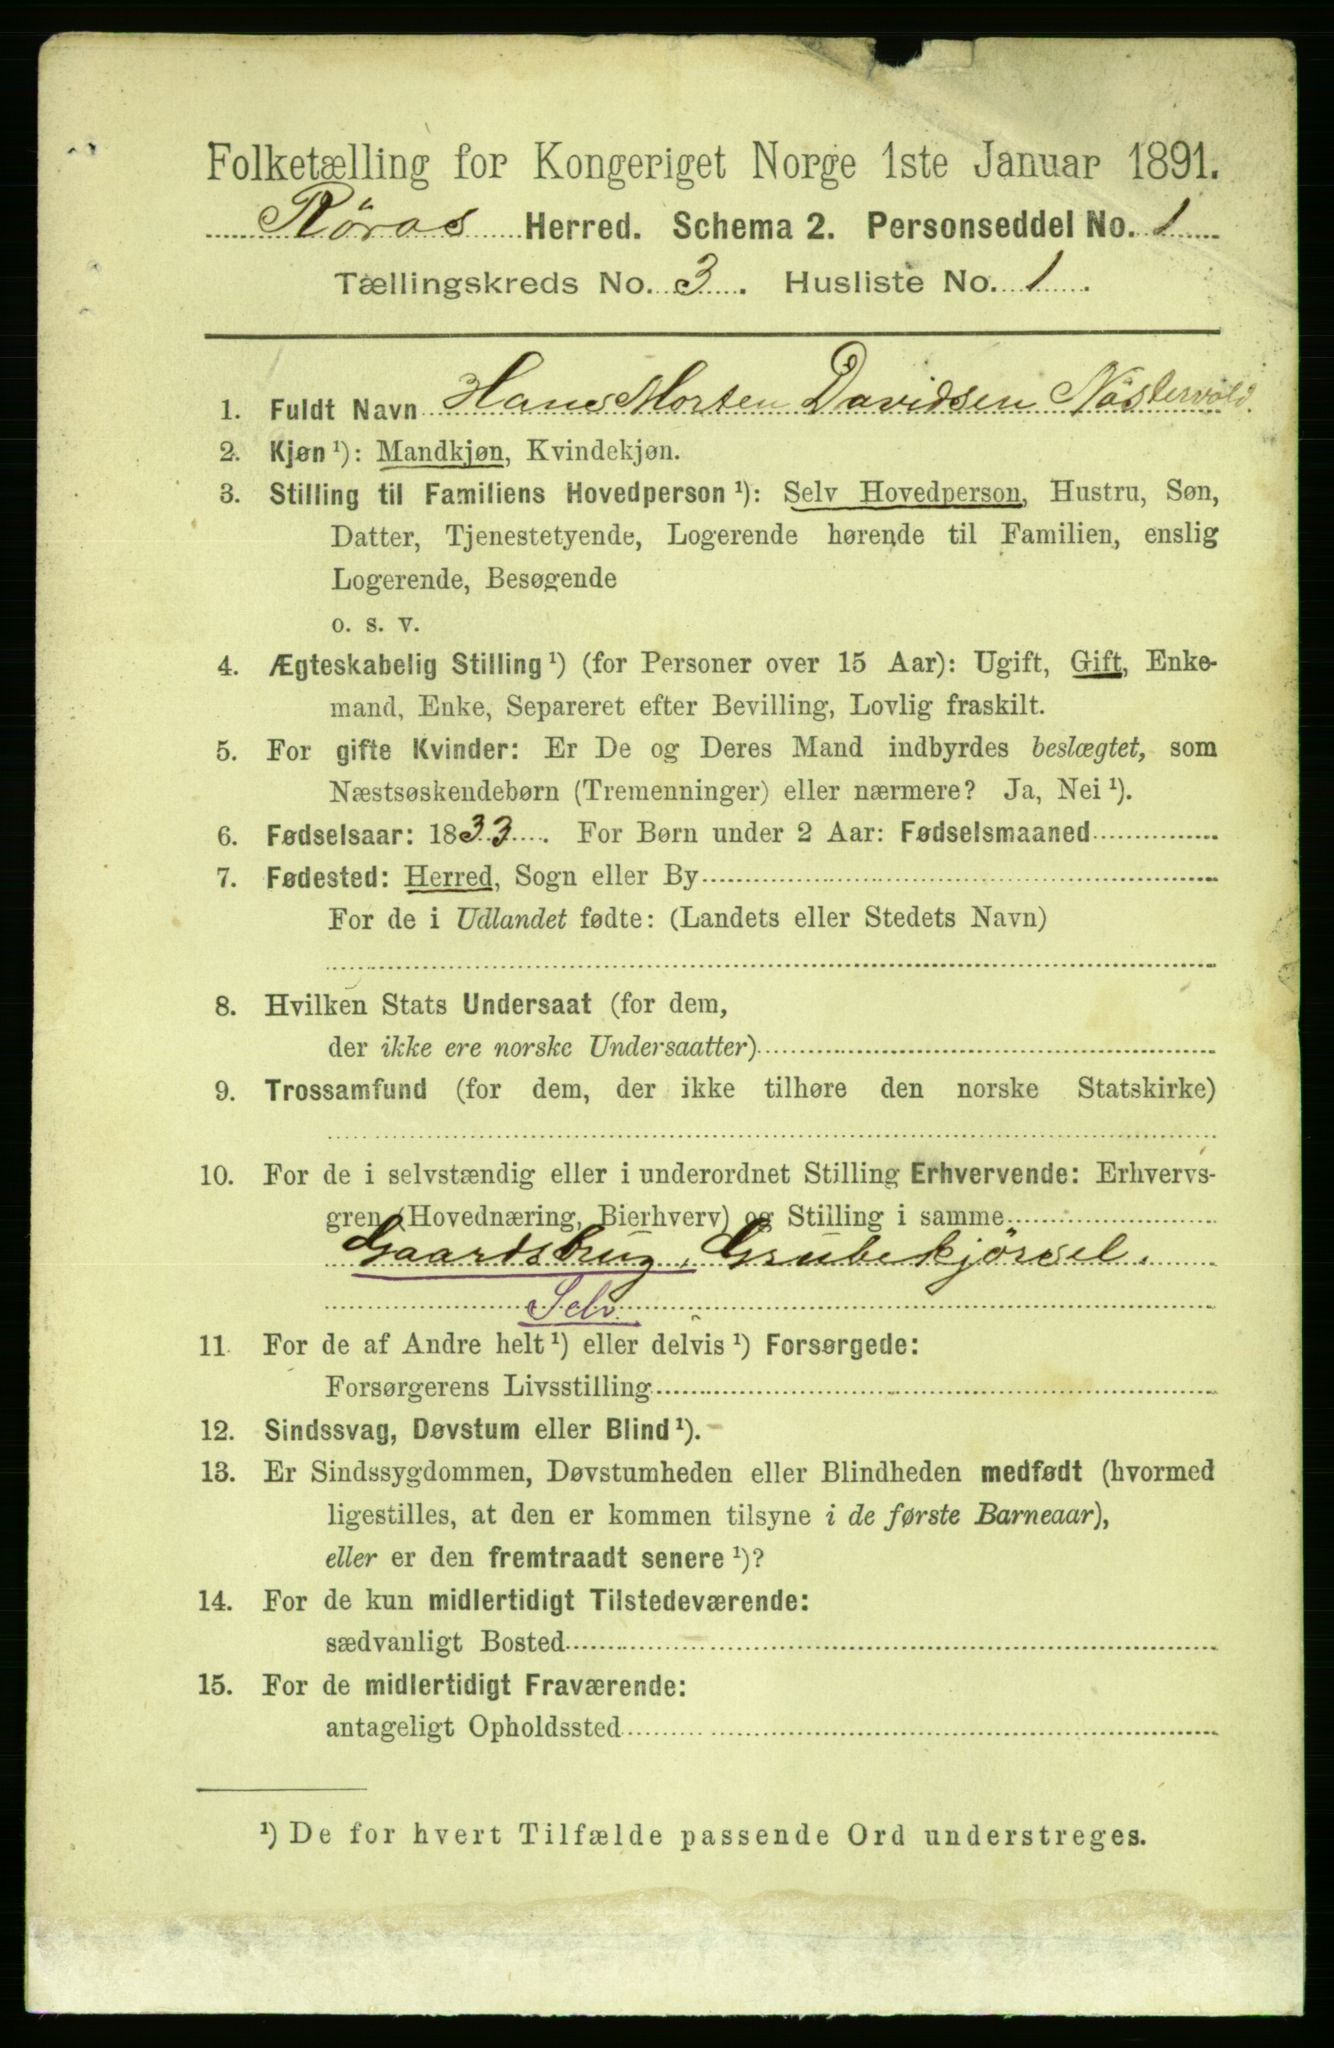 Folketælling for Kongeriget Norge 1ste Januar 1891.
Röros Herred. Schema 2. Personseddel No. 1
Tællingskreds No. 3. Husliste No. 1.
1. Fuldt Navn Hans Morten Davidsen Nöstervold.
2. Kjøn ¹): Mandkjøn, Kvindekjøn.
3. Stilling til Familiens Hovedperson ¹): Selv Hovedperson, Hustru, Søn,
Datter, Tjenestetyende, Logerende hørende til Familien, enslig
Logerende, Besøgende
o. s. v.
4. Ægteskabelig Stilling ¹) (for Personer over 15 Aar): Ugift, Gift, Enke-
mand, Enke, Separeret efter Bevilling, Lovlig fraskilt.
5. For gifte Kvinder: Er De og Deres Mand indbyrdes beslægtet, som
Næstsøskendebørn (Tremenninger) eller nærmere? Ja, Nei ¹).
6. Fødselsaar: 1833. For Børn under 2 Aar: Fødselsmaaned
7. Fødested: Herred, Sogn eller By
For de i Udlandet fødte: (Landets eller Stedets Navn)
8. Hvilken Stats Undersaat (for dem,
der ikke ere norske Undersaatter)
9. Trossamfund (for dem, der ikke tilhøre den norske Statskirke)
10. For de i selvstændig eller i underordnet Stilling Erhvervende: Erhvervs-
gren (Hovednæring, Bierhverv) og Stilling i samme
Gaardsbrug, Grubekjörsel.
Selv.
11 For de af Andre helt ¹) eller delvis ¹) Forsørgede:
Forsørgerens Livsstilling
12. Sindssvag, Døvstum eller Blind ¹).
13. Er Sindssygdommen, Døvstumheden eller Blindheden medfødt (hvormed
ligestilles, at den er kommen tilsyne i de første Barneaar),
eller er den fremtraadt senere ¹)?
14. For de kun midlertidigt Tilstedeværende:
sædvanligt Bosted
15. For de midlertidigt Fraværende:
antageligt Opholdssted
¹) De for hvert Tilfælde passende Ord understreges.